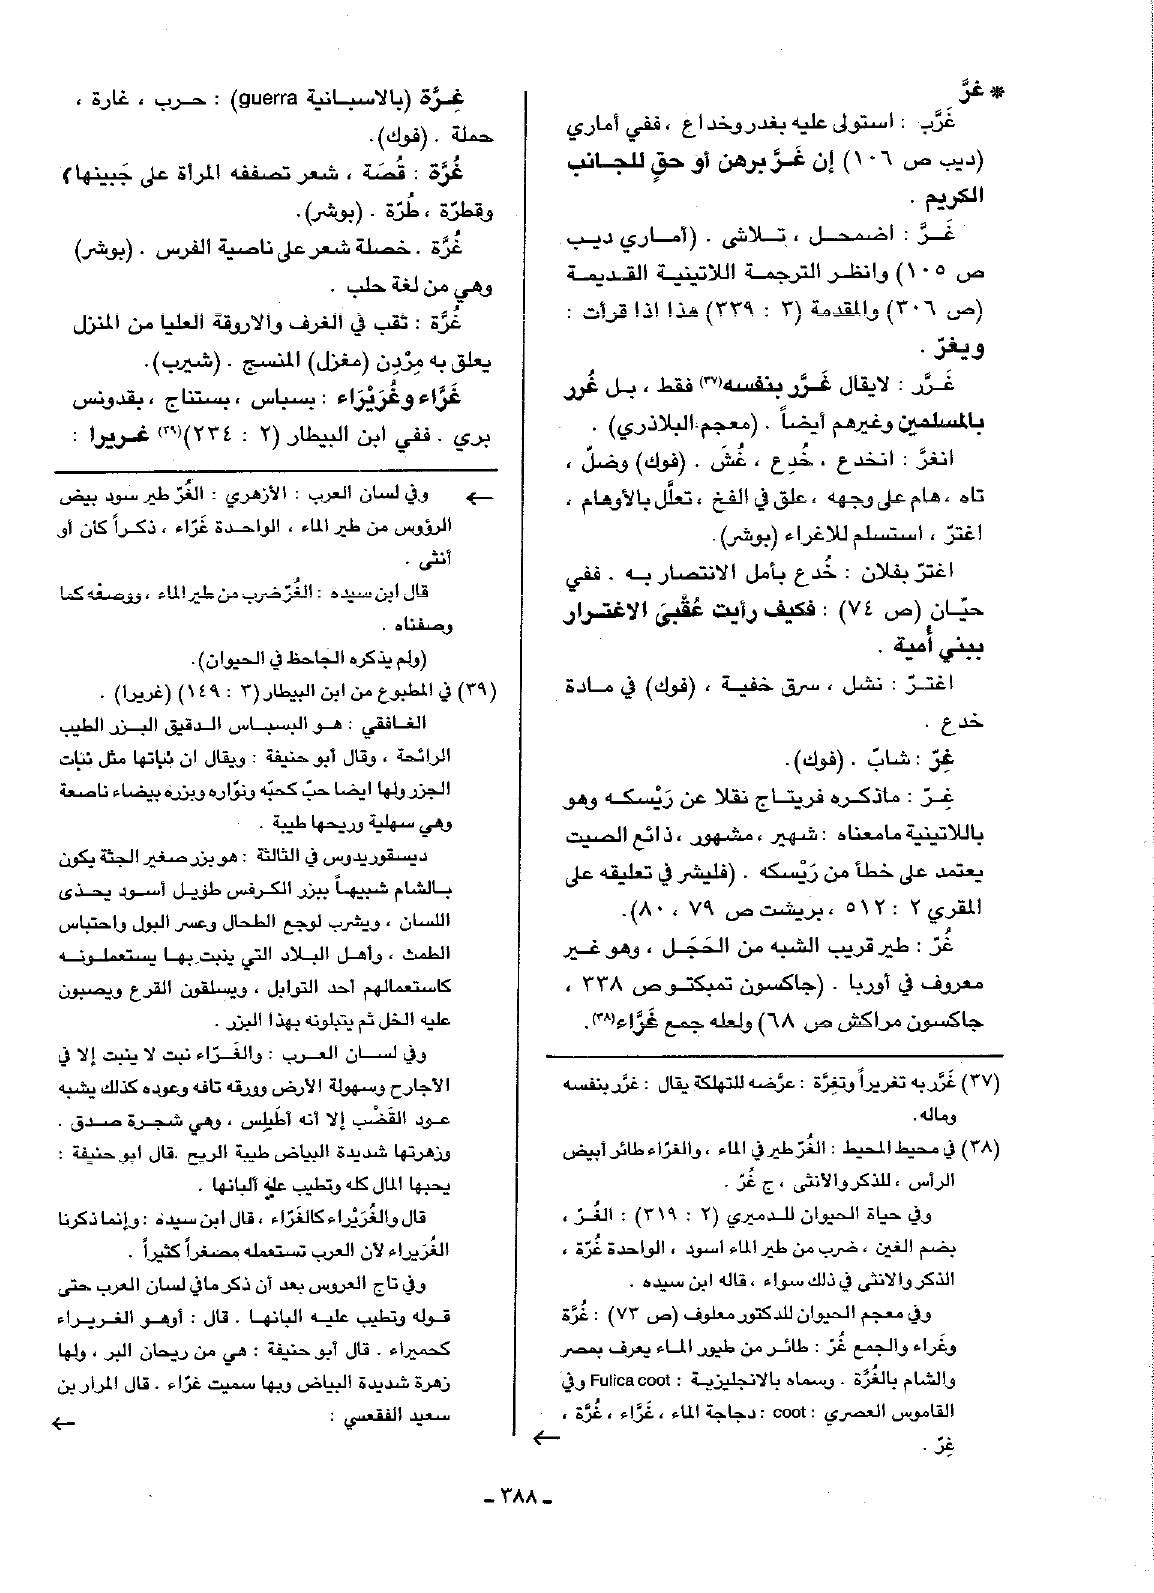 * غرَّ
غَرَّب : استولى عليه بغدر وخداع ، ففي أماري
(ديب ص ١٠٦) إن غَرَّ برهن أو حقٍ للجانب
الكريم .
غَرَّ : اضمحل ، تلاشى . (أماري ديب
ص ١٠٥) وانظر الترجمة اللاتينية القديمة
(ص ٣٠٦) والمقدمة (٣ : ٣٣٩) هذا اذا قرأت :
ويغرّ .
غَرَّر : لايقال غَرَّر بنفسه(٣٧) فقط ، بل غُرر
بالمسلمين وغيرهم أيضاً . (معجم البلاذري) .
انغرَّ : انخدع ، خُدِع ، غُشَ . (فوك) وضلّ ،
تاه ، هام على وجهه ، علق في الفخ ، تعلَّل بالأوهام ،
اغترّ ، استسلم للاغراء (بوشر).
اغترّ بفلان : خُدع بأمل الانتصار به . ففي
حيّان (ص ٧٤) : فكيف رأيت عُقْبىَ الاغترار
ببني أُمية .
اغترّ : نشل ، سرق خفية ، (فوك) في مادة
خدع .
غِرّ : شابّ . (فوك).
غِرّ : ماذكره فريتاج نقلا عن رَيْسكه وهو
باللاتينية مامعناه : شهير ، مشهور ، ذائع الصيت
يعتمد على خطأ من رَيْسكه . (فليشر في تعليقه على
المقري ٢ : ٥١٢ ، بريشت ص ٧٩ ، ٨٠).
غُرّ : طير قريب الشبه من الحَجَل ، وهو غير
معروف في أوربا . (جاكسون تمبكتو ص ٣٣٨ ،
جاكسون مراكش ص ٦٨) ولعله جمع غَرَّاء(٣٨).
(٣٧) غَرَّر به تغريراً وتغِرَّة : عرَّضه للتهلكة يقال : غرَّر بنفسه
وماله.
(٣٨) في محيط المحيط : الغُرّ طير في الماء ، والغرّاء طائر أبيض
الرأس ، للذكر والانثى ، ج غُرّ .
وفي حياة الحيوان للدميري (٢ : ٣١٩) : الغُرّ ،
بضم الغين ، ضرب من طير الماء اسود ، الواحدة غُرَّة ،
الذكر والانثى في ذلك سواء ، قاله ابن سيده .
وفي معجم الحيوان للدكتور معلوف (ص ٧٣) : غُرَّة
وغراء والجمع غُرّ : طائر من طيور الماء يعرف بمصر
والشام بالغُرَّة . وسماه بالانجليزية : Fulica coot وفي
القاموس العصري : coot : دجاجة الماء ، غَرَّاء ، غُرَّة ،
غِرّ .
←
غِرَّة (بالاسبانية guerra) : حرب ، غارة ،
حملة . (فوك).
غُرَّة : قُصَة ، شعر تصففه المرأة على جَبينها؟
وقطرّة ، طُرّة . (بوشر).
غُرَّة . خصلة شعر على ناصية الفرس . (بوشر)
وهي من لغة حلب .
غُرَّة : ثقب في الغرف والاروقة العليا من المنزل
يعلق به مِرْدِن (مغزل) المنسج . (شيرب).
غَرَّاء وغُرَيْرَاء : بسباس ، بستناج ، بقدونس
بري . ففي ابن البيطار (٢ : ٢٣٤)(٣٩) غريرا :
← وفي لسان العرب : الأزهري : الغُرّ طير سود بيض
الرؤوس من طير الماء ، الواحدة غَرّاء ، ذكراً كان أو
أنثى .
قال ابن سيده : الغُرّ ضرب من طير الماء ، ووصفه كما
وصفناه .
(ولم يذكره الجاحظ في الحيوان).
(٣٩) في المطبوع من ابن البيطار (٣ : ١٤٩) (غريرا) .
الغافقي : هو البسباس الدقيق البزر الطيب
الرائحة ، وقال أبو حنيفة : ويقال ان نباتها مثل نبات
الجزر ولها ايضا حبّ كحبّه ونوّاره وبزره بيضاء ناصعة
وهي سهلية وريحها طيبة .
ديسقوريدوس في الثالثة : هو بزر صغير الجثة يكون
بالشام شبيهاً ببزر الكرفس طويل أسود يحذى
اللسان ، ويشرب لوجع الطحال وعسر البول واحتباس
الطمث ، وأهل البلاد التي ينبت بها يستعملونه
كاستعمالهم أحد التوابل ، ويسلقون القرع ويصبون
عليه الخل ثم يتبلونه بهذا البزر .
وفي لسان العرب : والغَرّاء نبت لا ينبت إلا في
الاجارح وسهولة الارض وورقه تافه وعوده كذلك يشبه
عود القَضْب إلا أنه أطَيلِس ، وهي شجرة صدق .
وزهرتها شديدة البياض طيبة الريح .قال ابو حنيفة :
يحبها المال كله وتطيب عليه ألبانها .
قال والغُرَيْراء كالغَرّاء ، قال ابن سيده : وإنما ذكرنا
الغُرَيراء لأن العرب تستعمله مصغراً كثيراً .
وفي تاج العروس بعد أن ذكر مافي لسان العرب حتى
قوله وتطيب عليه البانها . قال : أوهو الغريراء
كحميراء . قال أبو حنيفة : هي من ريحان البر ، ولها
زهرة شديدة البياض وبها سميت غرّاء . قال المرار بن
سعيد الفقعسي :
←
- ٣٨٨ -